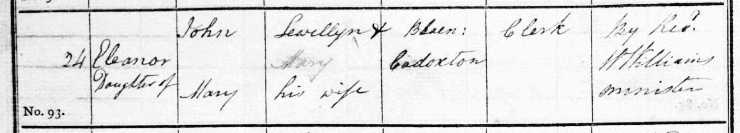 John Lewellyn & Blaen: Clerk By Revd.
24 Eleanor Mary Cadoxton W Williams
Daughter of Mary his wife minister
No. 93.